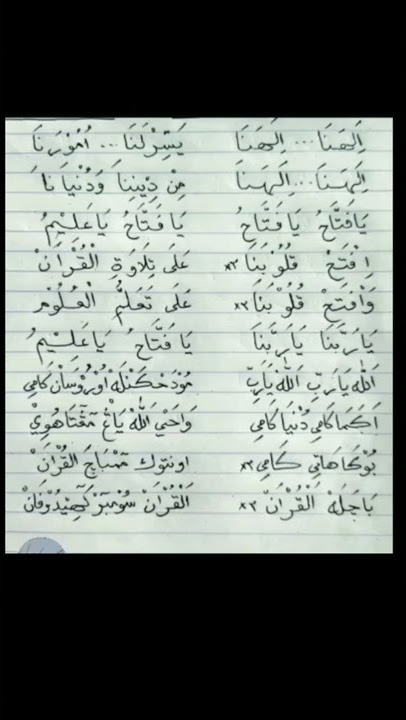 اِلٰهَنَا ... اِلٰهَنَا يَسِّرْ لَنَا ... اُمُوْرَنَا
اِلٰهَنَا ... اِلٰهَنَا مِنْ دِيْنِنَا وَدُنْيَانَا
يَافَتَّاحُ يَافَتَّاحُ يَا فَتَّاحُ يَا عَلِيْمُ
اِفْتَحْ قُلُوْبَنَا ×٢ عَلَى تِلَاوَةِ الْقُرْاَنْ
وَافْتَحْ قُلُوْبَنَا ×٢ عَلَى تَعَلُّمِ الْعُلُوْمِ
يَارَبَّنَا يَارَبَّنَا يَا فَتَّاحُ يَا عَلِيْمُ
اَللّٰه يَارَبِّ اَللّٰه يَارَبِّ مُوْدَحْكَنْلَهْ اُوْرُوْسَانْ كَامِي
اَكَمَا كَامِي دُنْيَا كَامِي وَاحَيْ اَللّٰهْ يَاڠْ مَڠْتَاهُوِيْ
بُوْكَا هَاتِي كَامِي ×٢ اونتوك مَمْبَاچَ الْقُرْاَنْ
بَاچَلَهْ اَلْقُرْاَنْ ×٢ اَلْقُرْاَنْ سُوْمْبَرْ كَهِيْدُوْفَانْ